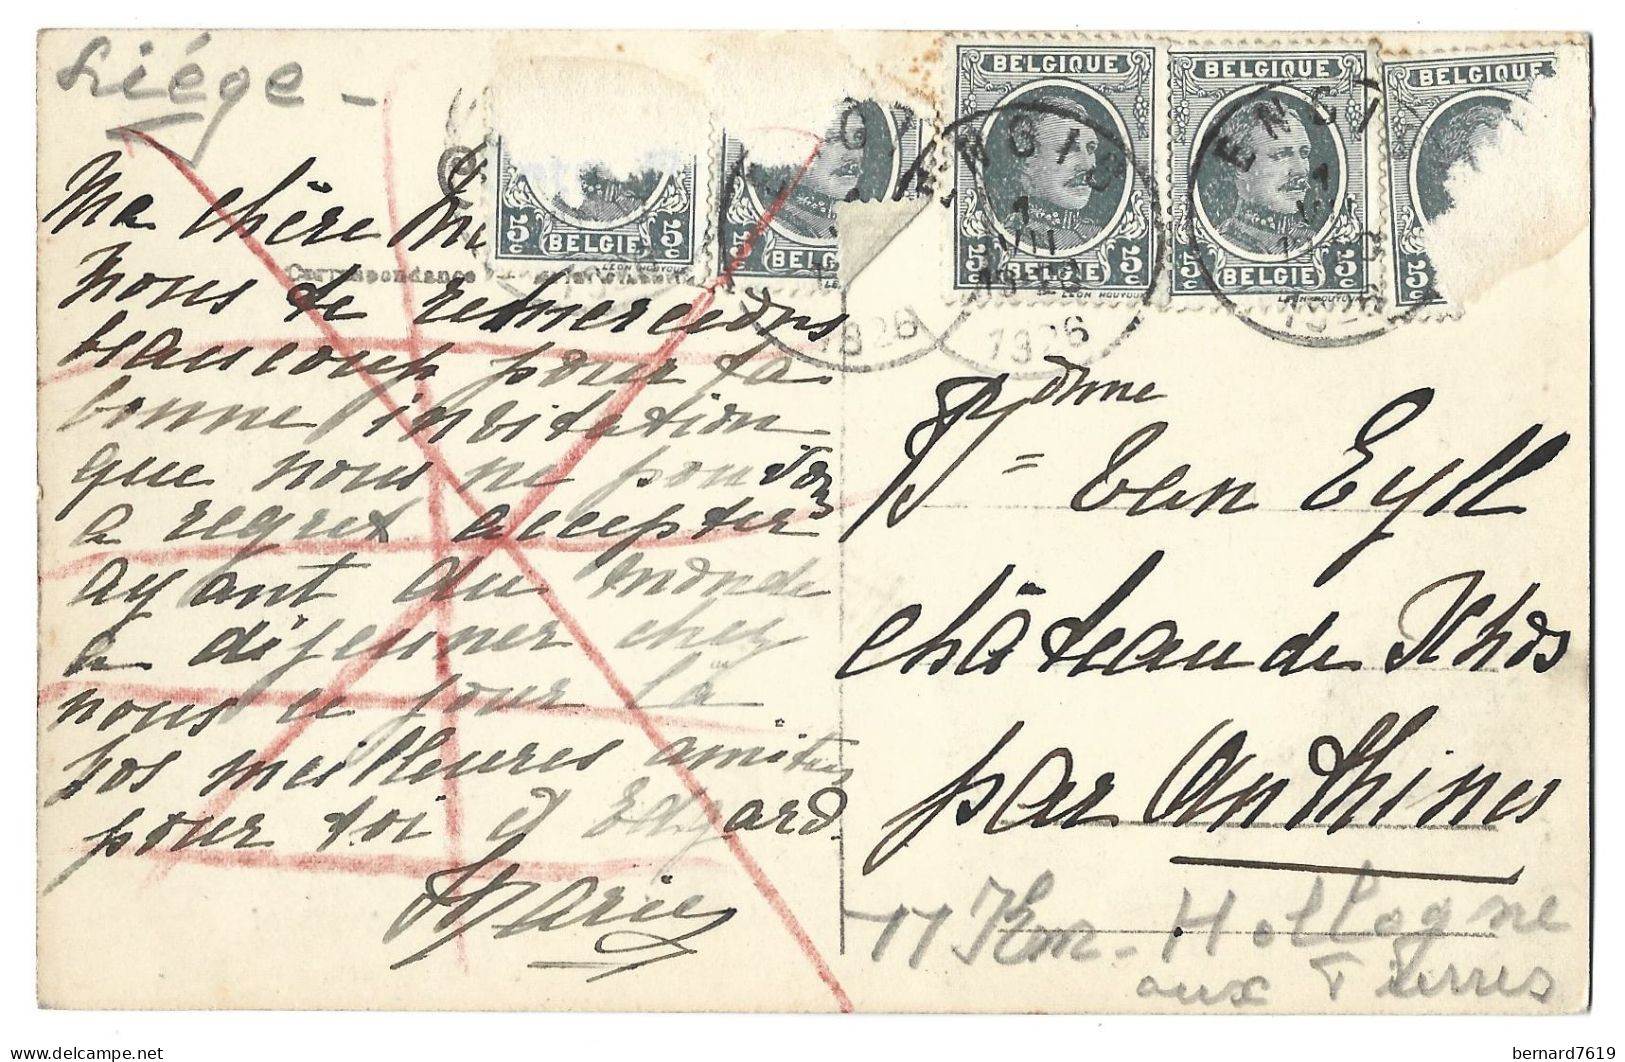 Liége -
Ma chère
Correspondance
nous te remercions
beaucoup pour ta
bonne invitation
que nous ne pouvons
a regret accepter
ayant du monde
à déjeuner chez
nous ce jour là
Nos meilleures amitiés
pour toi et Edgard.
Marie
BELGIQUE
BELGIQUE
BELGIQUE
5c BELGIE 5c
5c BELGIE
5c BELGIE 5c
5c BELGIE 5c
5c
LEON HOUYOUX
ENGIS
1
VII
1926
ENGI
1
VII
1926
1926
Bonne
Van Eyll
château de Xhos
par Anthines
11 Km - Hollogne
aux Pierres
bernard7619